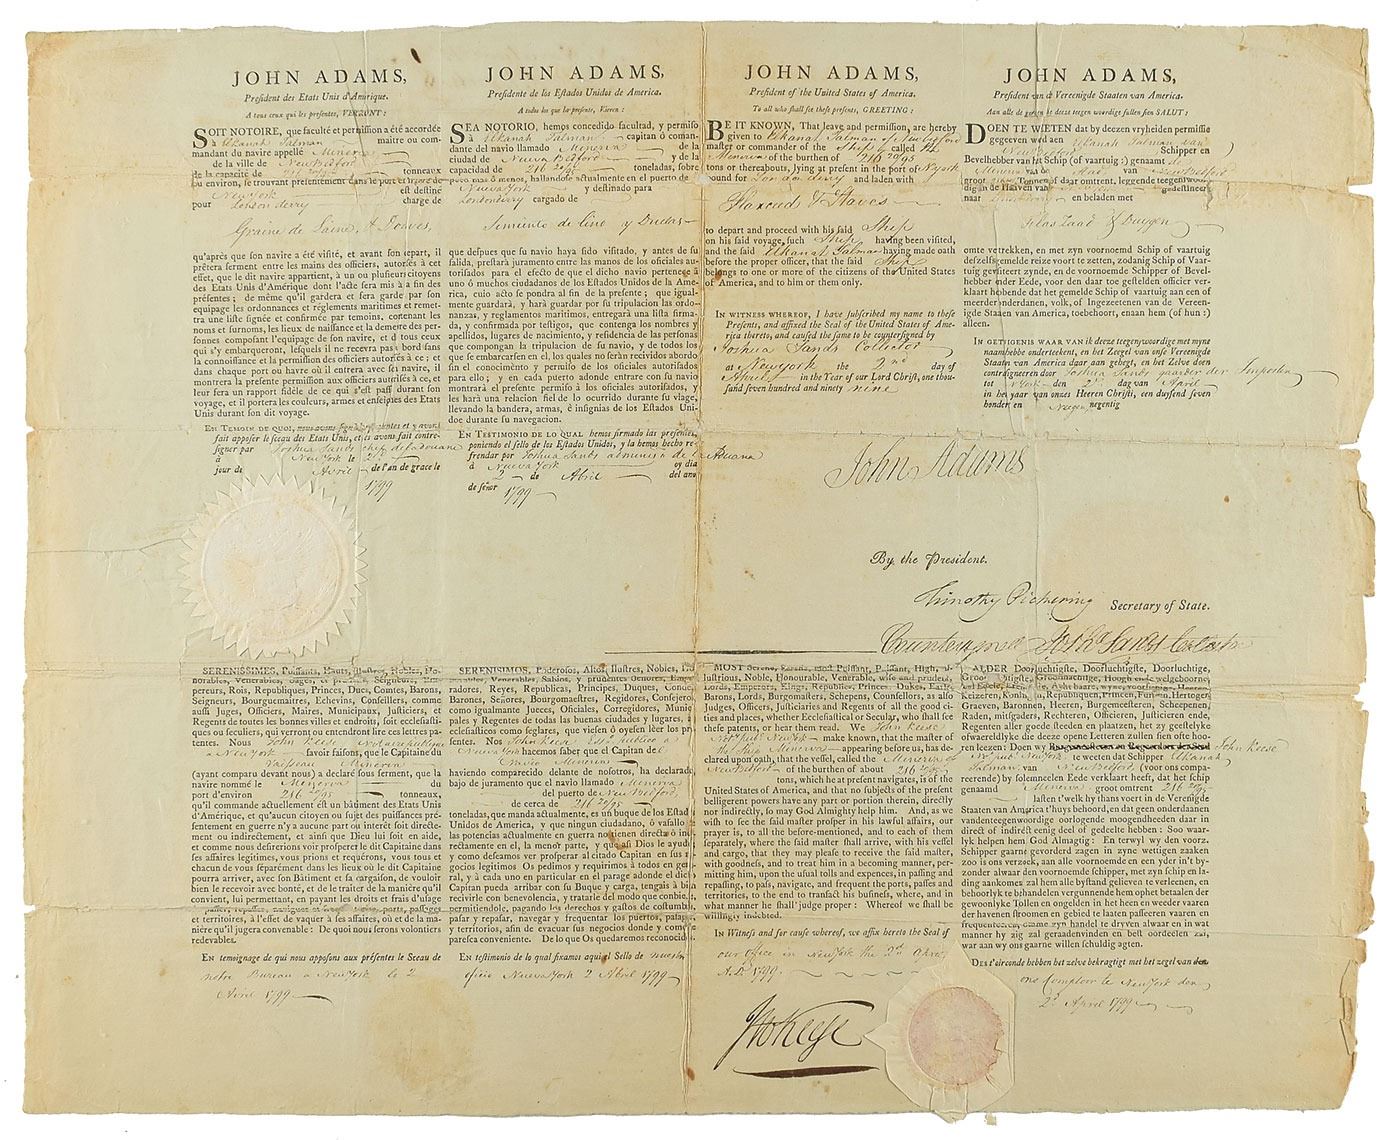 JOHN ADAMS,
President des Etats Unis d'Amérique.
A tous ceux qui les presentes, VERRONT:
SOIT NOTOIRE, que faculté et permission a été accordée
à Elkanah Talman maitre ou com-
mandant du navire appellé Minerva
de la ville de New Bedford
de la capacité de 216 20/95 tonneaux
ou environ, se trouvant présentement dans le port et havre de
New York est destiné
pour Londonderry chargé de
Graine de Laine, & Douves,
qu'après que son navire a été visité, et avant son depart, il
prêtera serment entre les mains des officiers, autorisés à cet
effet, que le dit navire appartient, à un ou plusieurs citoyens
des Etats Unis d'Amérique dont l'acte sera mis à la fin des
présentes; de même qu'il gardera et sera garde par son
equipage les ordonnances et réglements maritimes et remet-
tra une liste signée et confirmée par temoins, contenant les
noms et surnoms, les lieux de naissance et la demeure des per-
sonnes composant l'equipage de son navire, et de tous ceux
qui s'y embarqueront, lesquels il ne recevra pas à bord sans
la connoissance et la permission des officiers autorisés à ce; et
dans chaque port ou havre où il entrera avec son navire, il
montrera la presente permission aux officiers autorisés à ce, et
leur fera un rapport fidèle de ce qui s'est passé durant son
voyage, et il portera les couleurs, armes et enseignes des Etats
Unis durant son dit voyage.
EN TEMOIN DE QUOI, nous avons signé les présentes et y avons
fait apposer le sceau des Etats Unis, et les avons fait contre-
signer par Joshua Sands chef des Douane
à New York le 2d
jour de Avril de l'an de grace le
1799
JOHN ADAMS,
Presidente de los Estados Unidos de America.
A todos los que las presentes, Vieren:
SEA NOTORIO, hemos concedido facultad, y permiso
à Elkanah Talman capitan ó coman-
dante del navio llamado Minerva de la
ciudad de Nueva Bedford y de la
capacidad de 216 20/95 toneladas, sobre
poco mas ó menos, hallandose actualmente en el puerto de
Nueva York y destinado para
Londonderry cargado de
Simiento de Lino y Duelas
que despues que su navio haya sido visitado, y antes de su
salida, prestará juramento entre las manos de los oficiales au-
torisados para el efecto de que el dicho navio pertenece à
uno ó muchos ciudadanos de los Estados Unidos de la Ame-
rica, cuio acto se pondra al fin de la presente; que igual-
mente guardará, y hará guardar por su tripulacion las orde-
nanzas, y reglamentos maritimos, entregará una lista firma-
da, y confirmada por testigos, que contenga los nombres y
apellidos, lugares de nacimiento, y residencia de las personas
que compongan la tripulacion de su navio, y de todos los
que se embarcasen en el, los quales no serán recividos abordo
sin el conocimento y permiso de los oficiales autorisados
para ello; y en cada puerto adonde entrare con su navio
montrará el presente permiso à los oficiales autorisados, y
les hará una relacion fiel de lo ocurrido durante su vlage,
llevando la bandera, armas, è insignias de los Estados Uni-
dos durante su navegacion.
EN TESTIMONIO DE LO QUAL hemos firmado las presentes,
poniendo el sello de los Estados Unidos, y la hemos hecho re-
frendar por Joshua Sands administr de la Aduana
à Nueva York oy dia
2 de Abril del ano
de señor 1799
JOHN ADAMS,
President of the United States of America.
To all who shall see these presents, GREETING:
BE IT KNOWN, That leave and permission, are hereby
given to Elkanah Talman of New Bedford
master or commander of the Ship called the
Minerva of the burthen of 216 20/95
tons or thereabouts, lying at present in the port of N York
bound for Londonderry and laden with
Flaxseed & Staves
to depart and proceed with his said Ship
on his said voyage, such Ship having been visited,
and the said Elkanah Talman having made oath
before the proper officer, that the said Ship
belongs to one or more of the citizens of the United States
of America, and to him or them only.
IN WITNESS WHEREOF, I have subscribed my name to these
Presents, and affixed the Seal of the United States of Ame-
rica thereto, and caused the same to be countersigned by
Joshua Sands Collector
at New york the 2nd day of
April in the Year of our Lord Christ, one thou-
sand seven hundred and ninety nine
JOHN ADAMS,
President van de Vereenigde Staaten van America.
Aan alle de geenen die deeze teegen woordige sullen sien SALUT:
DOEN TE WIETEN dat by deezen vryheiden permissie
gegeeven word aen Elkanah Talman van
New Bedford Schipper en
Bevelhebber van het Schip (of vaartuig:) genaamt de
Minerva van de Stad van New Bedford
groot Tonnen of daar omtrent, leggende teegenwoor-
dig in de Haaven van New York gedestineert
naar Londonderry en beladen met
Vlas Zaad & Duygen
omte vetrekken, en met zyn voornoemd Schip of vaartuig
deszelfs gemelde reize voort te zetten, zodanig Schip of Vaar-
tuig geviseert zynde, en de voornoemde Schipper of Bevel-
hebber onder Eede, voor den daar toe gestelden officier ver-
klaart hebbende dat het gemelde Schip of vaartuig aan een of
meerder onderdanen, volk, of Ingezeetenen van de Vereen-
igde Staaten van America, toebehoort, enaan hem (of hun:)
alleen.
IN GETIGENIS WAAR VAN ik deeze teegenwoordige met myne
naamhebbe onderteekent, en het Zeegel van onse Vereenigde
Staaten van America daar aan gehegt, en het Zelve doen
contrasigneeren door Joshua Sands gaarder der Imposten
tot N York den 2d dag van April
in het yaar van onzes Heeren Christi, een duysend seven
hondert en Neegen negentig
John Adams
By the President.
Timothy Pickering Secretary of State.
Countersigned Josha Sands Collector
SERENISSIMES, Puissants, Hauts, illustres, Nobles, Ho-
norables, Venerables, Sages, et prudents, Seigneurs, Em-
pereurs, Rois, Republiques, Princes, Ducs, Comtes, Barons,
Seigneurs, Bourguemaitres, Echevins, Conseillers, comme
aussi Juges, Officiers, Maires, Municipaux, Justiciers, et
Regents de toutes les bonnes villes et endroits, soit ecclesiasti-
ques ou seculiers, qui verront ou entendront lire ces lettres pa-
tentes. Nous John Keese notaire publique
a New York savoir faisons, que le Capitaine du
Vaisseau Minerva
(ayant comparu devant nous) a declaré sous serment, que la
navire nommé le Minerva du
port d'environ 216 20/95 tonneaux,
qu'il commande actuellement est un bâtiment des Etats Unis
d'Amérique, et qu'aucun citoyen ou sujet des puissances pré-
sentement en guerre n'y a aucune part ou intérêt soit directe-
ment ou indirectement, et ainsi que Dieu lui soit en aide,
et comme nous desirerions voir prosperer le dit Capitaine dans
ses affaires legitimes, vous prions et requérons, vous tous et
chacun de vous séparément dans les lieux où le dit Capitaine
pourra arriver, avec son Bâtiment et sa cargaison, de vouloir
bien le recevoir avec bonté, et de le traiter de la manière qu'il
convient, lui permettant, en payant les droits et frais d'usage
passer, repasser, naviguer et frequenter ports, passages
et territoires, à l'effet de vacquer à ses affaires, où et de la ma-
nière qu'il jugera convenable: De quoi nous serons volontiers
redevables.
EN temoignage de qui nous apposons aux présentes le Sceau de
notre Bureau a New York le 2
Avril 1799
SERENISIMOS, Poderosos, Altos, Ilustres, Nobles,
Venerables, Sabios, y prudentes Señores, Empe-
radores, Reyes, Republicas, Principes, Duques, Conde
Barones, Señores, Borgomaestres, Regidores, Consejero
como igualmente Jueces, Oficiales, Corregidores, Munic
pales y Regentes de todas las buenas ciudades y lugares, à
eclesiasticos como seglares, que viesen ó oyesen léer los pr
sentes. Nos John Keese Essno publico à
Nueva York hacemos saber que el Capitan de el
Navio Minerva
haviendo comparecido delante de nosotros, ha declarado
bajo de juramento que el navio llamado Minerva
del puerto de New Bedford,
de cerca de 216 20/95
toneladas, que manda actualmente, es un buque de los Estad
Unidos de America, y que ningun ciudadano, ó vasallo
las potencias actualmente en guerra no tienen directo ó ind
rectamente en el, la menor parte, y que asi Dios le ayude
y como deseamos ver prosperar al citado Capitan en sus n
gocios legitimos Os pedimos y requirimos à todos en gen
ral, y à cada uno en particular en el parage adonde el dich
Capitan pueda arribar con su Buque y carga, tengais à bien
recivirle con benevolencia, y tratarle del modo que convie
permitiendole, pagando los derechos y gastos de costumbr
pasar y repasar, navegar y frequentar los puertos, pasage
y territorios, afin de evacuar sus negocios donde y como
paresca conveniente. De lo que Os quedaremos reconocidos
EN testimonio de lo qual fixamos aqui el Sello de nuestro
oficio Nueva York 2 Abril 1799
MOST Serene, Serene, most Puissant, Puissant, High, il-
lustrious, Noble, Honourable, Venerable, wise and prudent,
Lords, Emperors, Kings, Republics, Princes, Dukes, Earls,
Barons, Lords, Burgomasters, Schepens, Counsellors, as also
Judges, Officers, Justiciaries and Regents of all the good ci-
ties and places, whether Ecclesiastical or Secular, who shall see
these patents, or hear them read. We John Keese
Noty Publ New York make known, that the master of
the Ship Minerva appearing before us, has de-
clared upon oath, that the vessel, called the Minerva of
New Bedford of the burthen of about 216 20/95
tons, which he at present navigates, is of the
United States of America, and that no subjects of the present
belligerent powers have any part or portion therein, directly
nor indirectly, so may God Almighty help him. And, as we
wish to see the said master prosper in his lawful affairs, our
prayer is, to all the before-mentioned, and to each of them
separately, where the said master shall arrive, with his vessel
and cargo, that they may please to receive the said master,
with goodness, and to treat him in a becoming manner, per-
mitting him, upon the usual tolls and expences, in passing and
repassing, to pass, navigate, and frequent the ports, passes and
territories, to the end to transact his business, where, and in
what manner he shall judge proper: Whereof we shall be
willingly indebted.
In Witness and for cause whereof, we affix hereto the Seal of
our office in New York the 2d April,
A.D. 1799.
Jno Keese
ALDER Doorluchtigste, Doorluchtigste, Doorluchtige,
Groot Grootmachtige, Hoogh ende welgeboorne,
Achtbaare, wyze, voorsienige, Heeren
Keizeren, Konh,
Graeven, Baronnen, Heeren, Burgemeesteren, Scheepenen,
Raden, mitsgaders, Rechteren, Officieren, Justicieren ende,
Regenten aller goede steeden en plaatzen, het zy geestelyke
ofwaereldlyke die deeze opene Letteren zullen sien ofte hoo-
ren leezen: Doen wy John Keese
Ns publ New York te weeten dat Schipper Elkanah
Talman van New Bedford (voor ons compa-
reerende) by solemneelen Eede verklaart heeft, dat het schip
genaamd Minerva groot omtrent 216 20/95
lasten t'welk hy thans voert in de Vereenigde
Staaten van America t'huys behoord, en dat geen onderdaanen
vandenteegenwoordige oorlogende moogendheeden daar in
direct of indirect eenig deel of gedeelte hebben: Soo waar-
lyk helpen hem God Almagtig: En terwyl wy den voorz.
Schipper gaarne gevorderd zagen in zyne wettigen zaaken
zoo is ons verzoek, aan alle voornoemde en een yder in't by-
zonder alwaar den voornoemde schipper, met zyn schip en la-
ding aankomen zal hem alle bystand gelieve te verleenen, en
behoorlyk te behandelen vergunnende hem ophet betaalen der
gewoonlyke Tollen en ongelden in het heen en weeder vaaren
der havenen stroomen en gebied te laaten passeeren vaaren en
frequenteeren, omme zyn handel te dryven alwaar en in wat
manner hy zig zal geraadenvinden en best oordeelen zal,
war aan wy ons gaarne willen schuldig agten.
Des t'oirconde hebben het zelve bekragtigt met het zegel van
ons Comptoor te New York den
2d April 1799